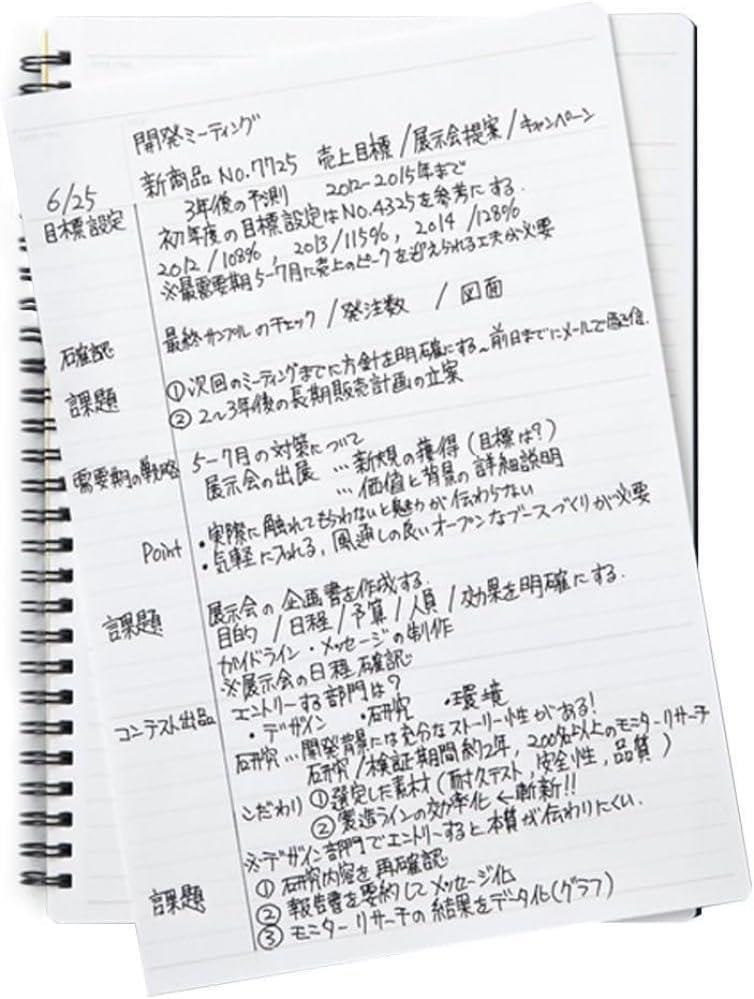 開発ミーティング
6/25 新商品 No.7725 売上目標/展示会提案/キャンペーン
目標設定 3年後の予測 2012-2015年まで
初年度の目標設定はNo.4325を参考にする.
2012/108%, 2013/115%, 2014/128%
※最需要期5-7月に売上のピークを迎えられる工夫が必要
確認 最終サンプルのチェック/発注数/図面
課題 ①次回のミーティングまでに方針を明確にする~前日までにメールで配信.
②2~3年後の長期販売計画の立案
需要期の戦略 5-7月の対策について
展示会の出展 …新規の獲得(目標は?)
…価値と背景の詳細説明
Point ・実際に触れてもらわないと魅力が伝わらない
・気軽に入れる、風通しの良いオープンなブースづくりが必要
課題 展示会の企画書を作成する.
目的/日程/予算/人員/効果を明確にする.
ガイドライン・メッセージの制作
※展示会の日程確認
コンテスト出品 エントリーする部門は?
・デザイン ・研究 ・環境
研究…開発背景には充分なストーリー性がある!
研究/検証期間約2年, 200名以上のモニターリサーチ
こだわり ①選定した素材(耐久テスト, 安全性, 品質)
②製造ラインの効率化←斬新!!
※デザイン部門でエントリーすると本質が伝わりにくい.
課題 ①研究内容を再確認
②報告書を要約してメッセージ化
③モニターリサーチの結果をデータ化(グラフ)